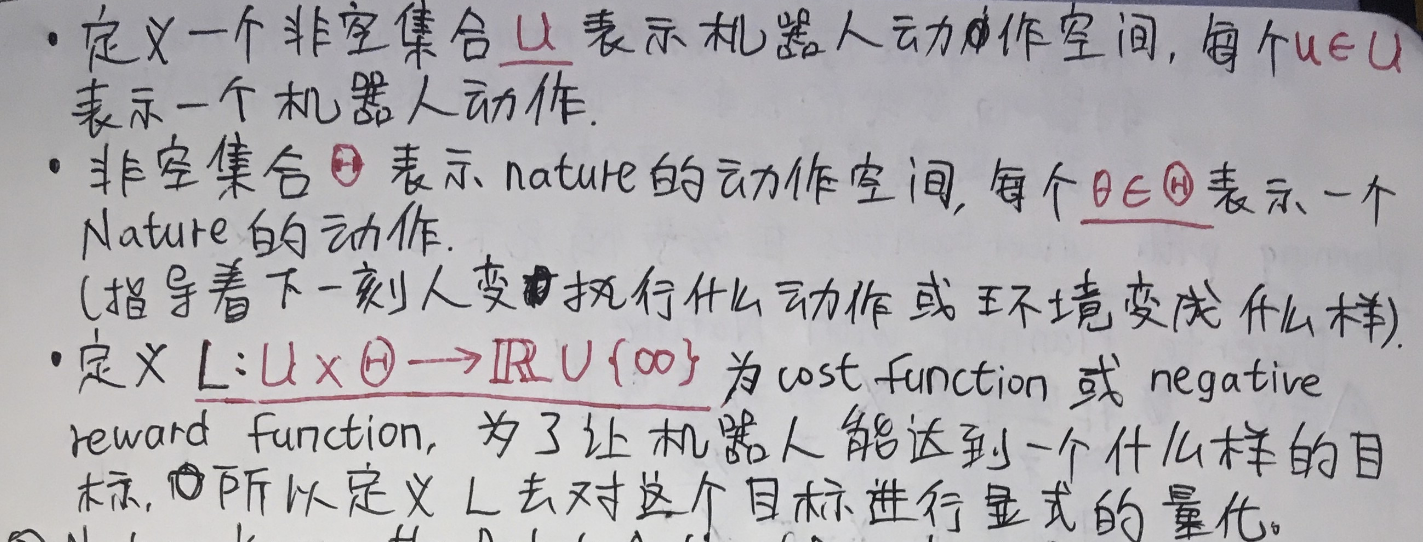 • 定义一个非空集合 U 表示机器人动作空间, 每个u∈U
表示一个机器人动作.
• 非空集合 Θ 表示 nature的动作空间, 每个 θ∈Θ 表示一个
Nature的动作.
(指导着下一刻人变执行什么动作或环境变成什么样).
• 定义 L: U × Θ → ℝ ∪ {∞} 为 cost function 或 negative
reward function, 为了让机器人能达到一个什么样的目
标, 所以定义 L 去对这个目标进行显式的量化。